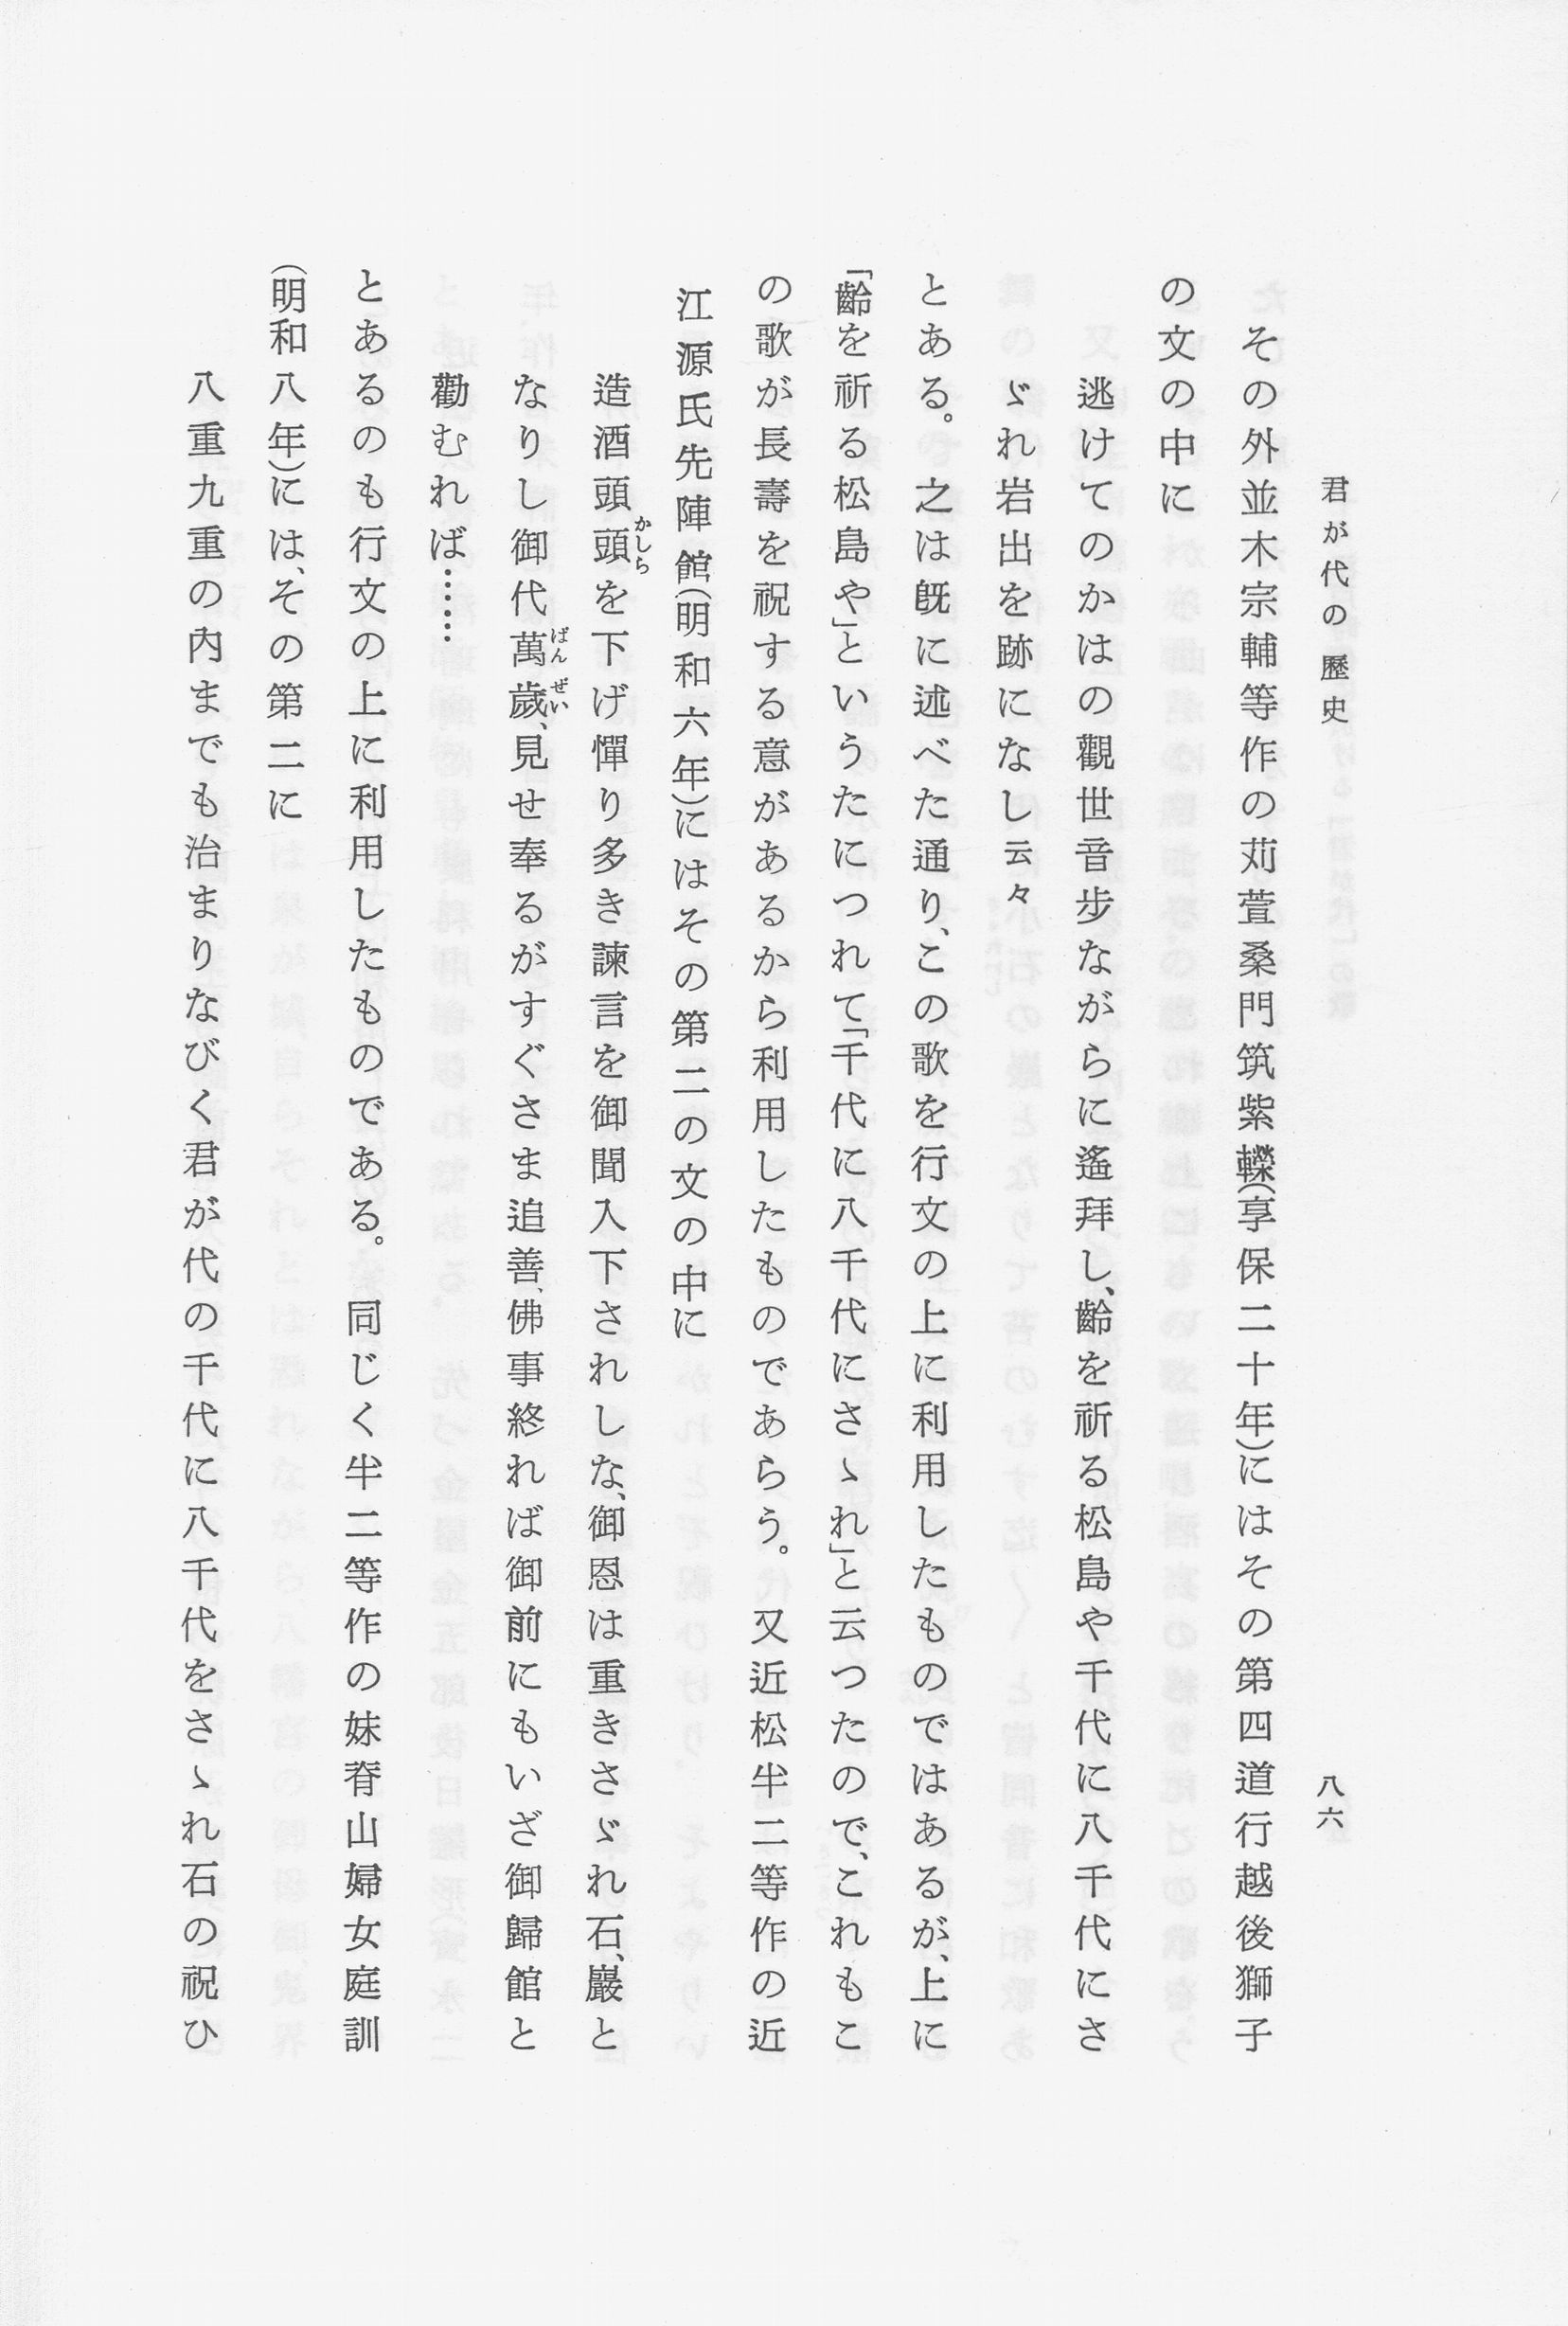 君が代の歴史
八六
その外並木宗輔等作の苅萱桑門筑紫𨏍(享保二十年)にはその第四道行越後獅子
の文の中に
逃けてのかはの觀世音步ながらに遙拜し、齡を祈る松島や千代に八千代にさ
ゞれ岩出を跡になし云々
とある。之は旣に述べた通り、この歌を行文の上に利用したものではあるが、上に
「齡を祈る松島や」というたにつれて「千代に八千代にさゝれ」と云つたので、これもこ
の歌が長壽を祝する意があるから利用したものであらう。又近松半二等作の近
江源氏先陣館(明和六年)にはその第二の文の中に
造酒頭頭かしらを下げ憚り多き諫言を御聞入下されしな、御恩は重きさゞれ石、巖と
なりし御代萬歲ばんぜい、見せ奉るがすぐさま追善、佛事終れば御前にもいざ御歸館と
勸むれば……
とあるのも行文の上に利用したものである。同じく半二等作の妹脊山婦女庭訓
(明和八年)には、その第二に
八重九重の內までも治まりなびく君が代の千代に八千代をさゝれ石の祝ひ